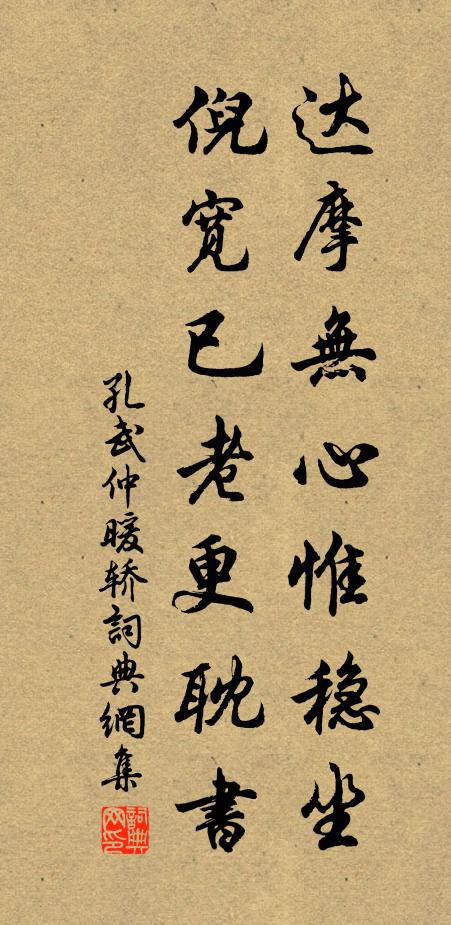 达摩無心惟稳坐
倪宽已老更耽書
孔武仲暖轿詞典網集
詞典网印